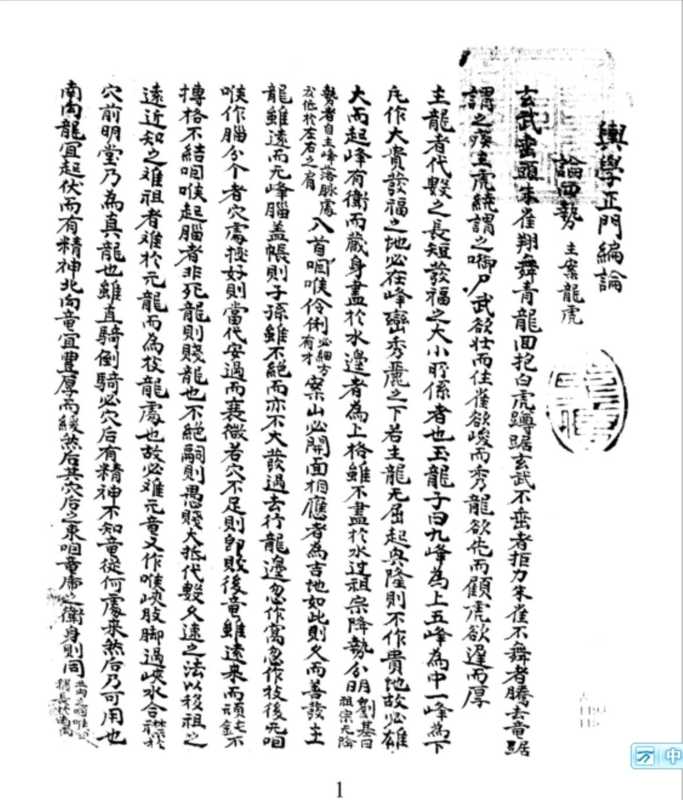 輿學正門編論
論四勢 主案龍虎
玄武垂頭朱雀翔舞青龍面抱白虎蹲踞玄武不垂者拒力朱雀不舞者騰去竜踞
謂之疾主虎繞謂之啣尸武欲壯而住雀欲峻而秀龍欲先而顧虎欲遅而厚
主龍者代數之長短發福之大小所係者也玉龍子曰九峰為上五峰為中一峰為下
凡作大貴發福之地必在峰巒秀麗之下若主龍无屈起與隆則不作貴地故必雄
大而起峰有衛而藏身盡於水邊者為上格雖不盡於水过祖宗降勢分明 劉基曰祖宗无降
勢者自主峰落脉處 或依於左右之肩 八首咽喉伶俐 必細方有才 案山必開面相應者為吉地如此則久而善發主
龍雖遠而无峰腦盖帳則子孫雖不絶而亦不大發过去行龍邊忽作窩忽作枝後无咽
喉作腦分个者穴處极好則當代安過而衰微若穴不足則即敗後竜雖遠來而頑鈍不
摶格不結咽喉起腦者非死龍則賤龍也不絶嗣則愚賤大抵代數久速之法以祖之
遠近知之難祖者難於元龍而為枝龍處也故必难元竜又作喉峽股脚過峽水合
穴前明堂乃為真龍也雖直騎倒騎必穴后有精神不知竜從何處来然后乃可用也
南向龍宜起伏而有精神北向竜宜豊厚而緩然后其穴后之束咽竜虎之衛身則同
1
中